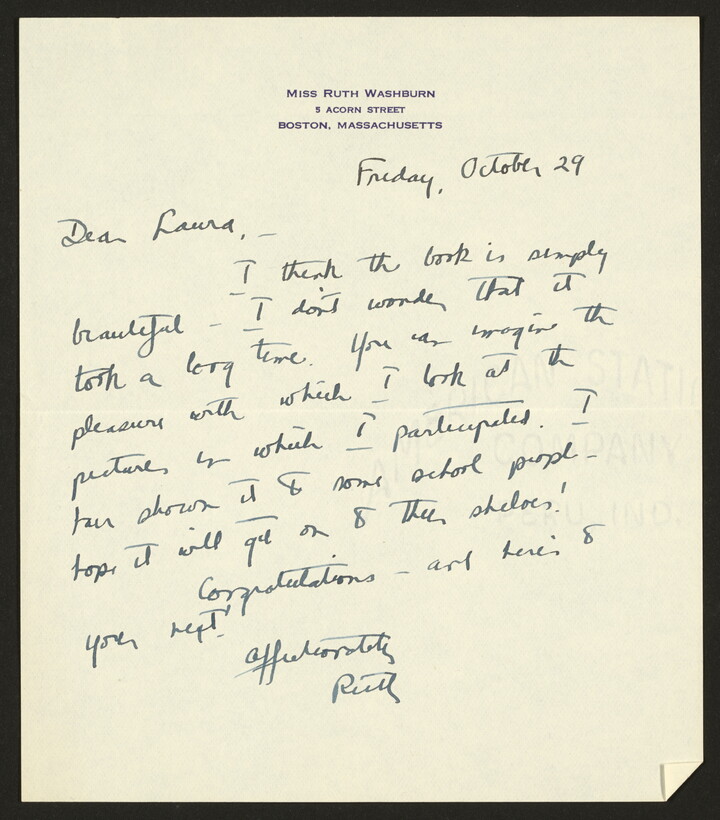 MISS RUTH WASHBURN
5 ACORN STREET
BOSTON, MASSACHUSETTS
Friday, October 29
Dear Laura, —
I think the book is simply
beautiful – I don't wonder that it
took a long time. You can imagine the
pleasure with which I look at the
pictures in which I participated. I
have shown it to some school people –
hope it will get on to their shelves!
Congratulations – and here's to
your next!
Affectionately
Ruth
CAN STATI
COMPANY
PERU IND.